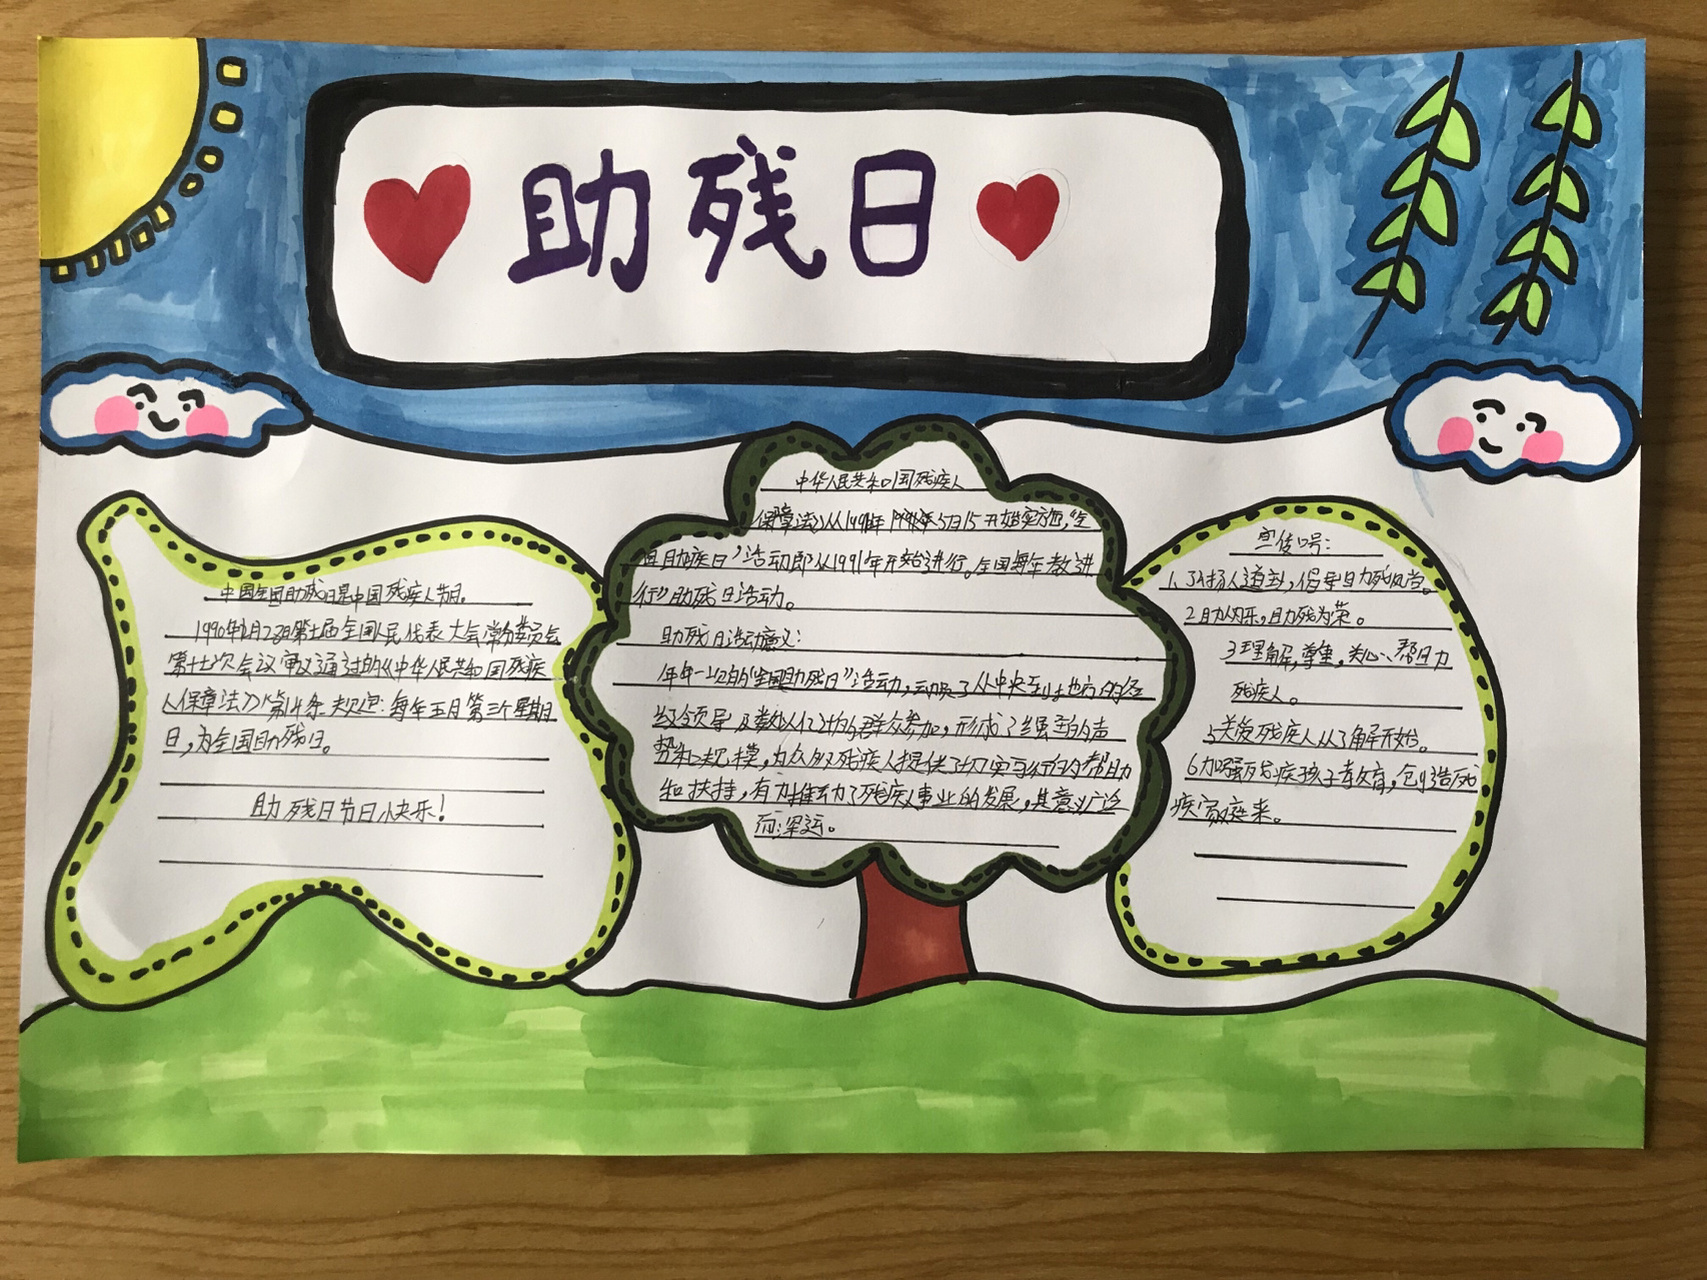 助残日
中国全国助残日是中国残疾人节日。
1990年12月28日第七届全国人民代表大会常务委员会
第十七次会议审议通过的《中华人民共和国残疾
人保障法》第14条规定:每年五月第三个星期
日,为全国助残日。
助残日节日快乐!
中华人民共和国残疾人
保障法》从1991年5月15开始实施,“全
国助残日”活动即从1991年开始进行。全国每年都进
行助残日活动。
助残日活动意义:
年年一次的“全国助残日”活动,动员了从中央到地方的各
级领导及数以亿计的群众参加,形成了强劲的声
势和规模,为众多残疾人提供了切实可行的帮助
和扶持,有力推动了残疾人事业的发展,其意义广泛
而深远。
宣传口号:
1.弘扬人道主义,倡导助残风尚。
2助人为乐,助残为荣。
3理解,尊重,关心、帮助
残疾人。
5关爱残疾人从了解开始。
6加强残疾孩子教育,创造残
疾家庭未来。